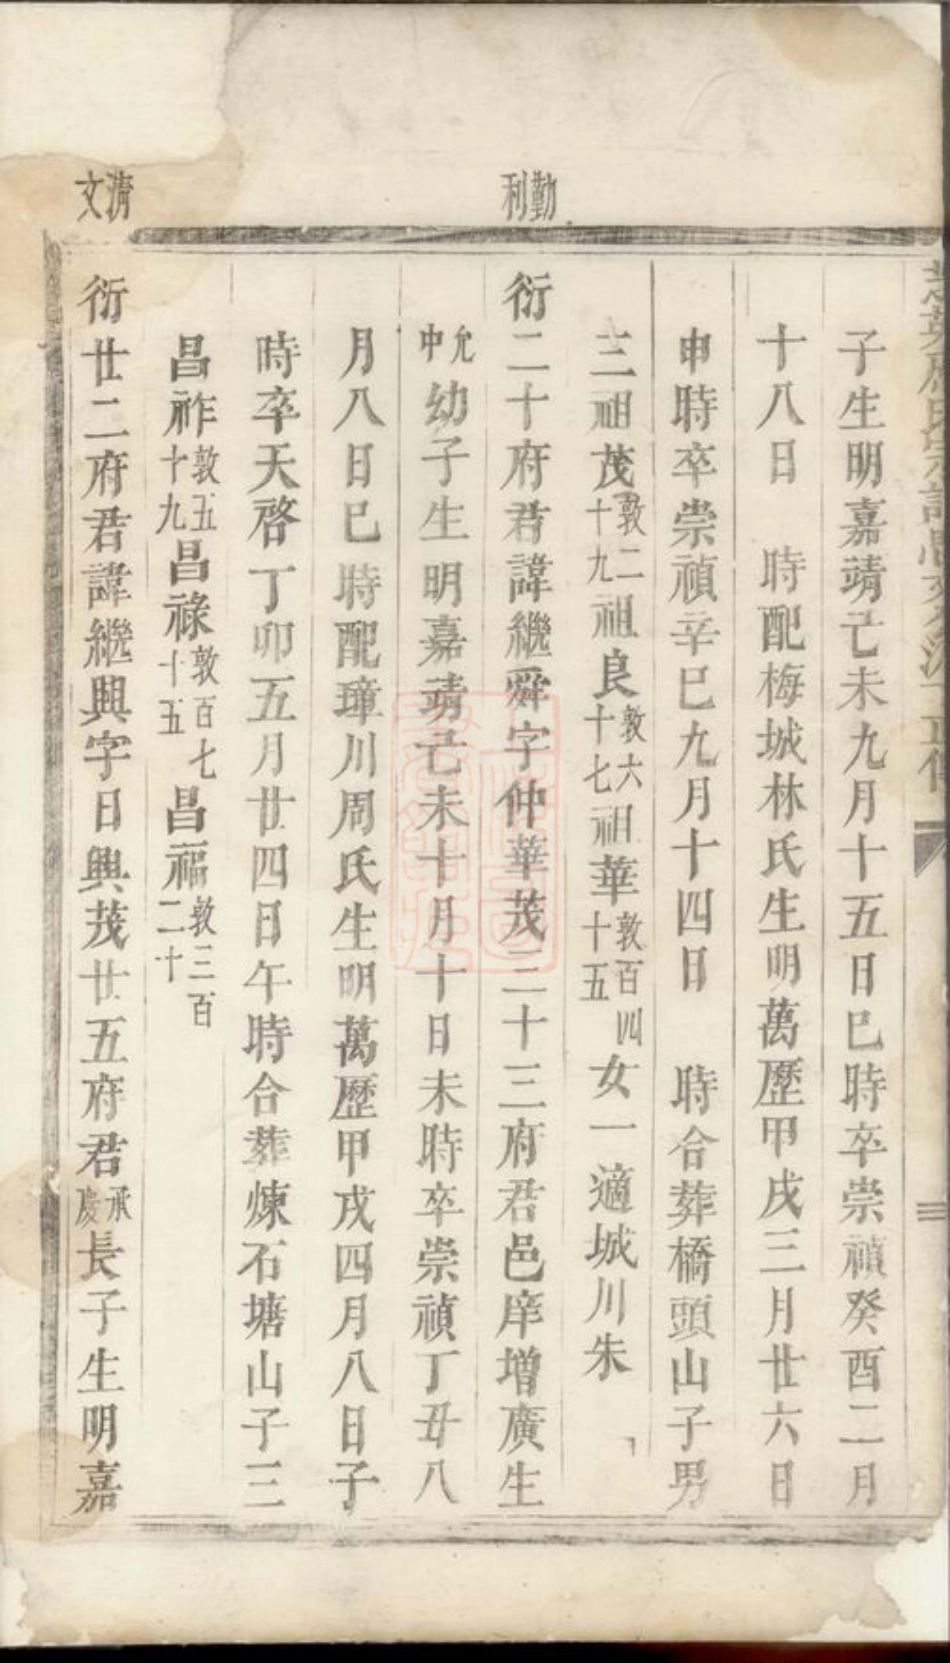 子生明嘉靖己未九月十五日巳時卒崇禎癸酉二月
十八日　時配梅城林氏生明萬歷甲戌三月廿六日
申時卒崇禎辛巳九月十四日　時合葬橋頭山子男
三祖茂敦二十九祖良敦六十七祖華敦百四十五女一適城川朱
勤利
衍二十府君諱繼舜字仲華茂三十三府君邑庠增廣生
允中幼子生明嘉靖己未十月十日未時卒崇禎丁丑八
月八日巳時配璋川周氏生明萬歷甲戌四月八日子
時卒天啓丁卯五月廿四日午時合葬煉石塘山子三
昌祚敦五十九昌祿敦百七十五昌福敦三百二十
濟文
衍廿二府君諱繼興字日興茂廿五府君承慶長子生明嘉